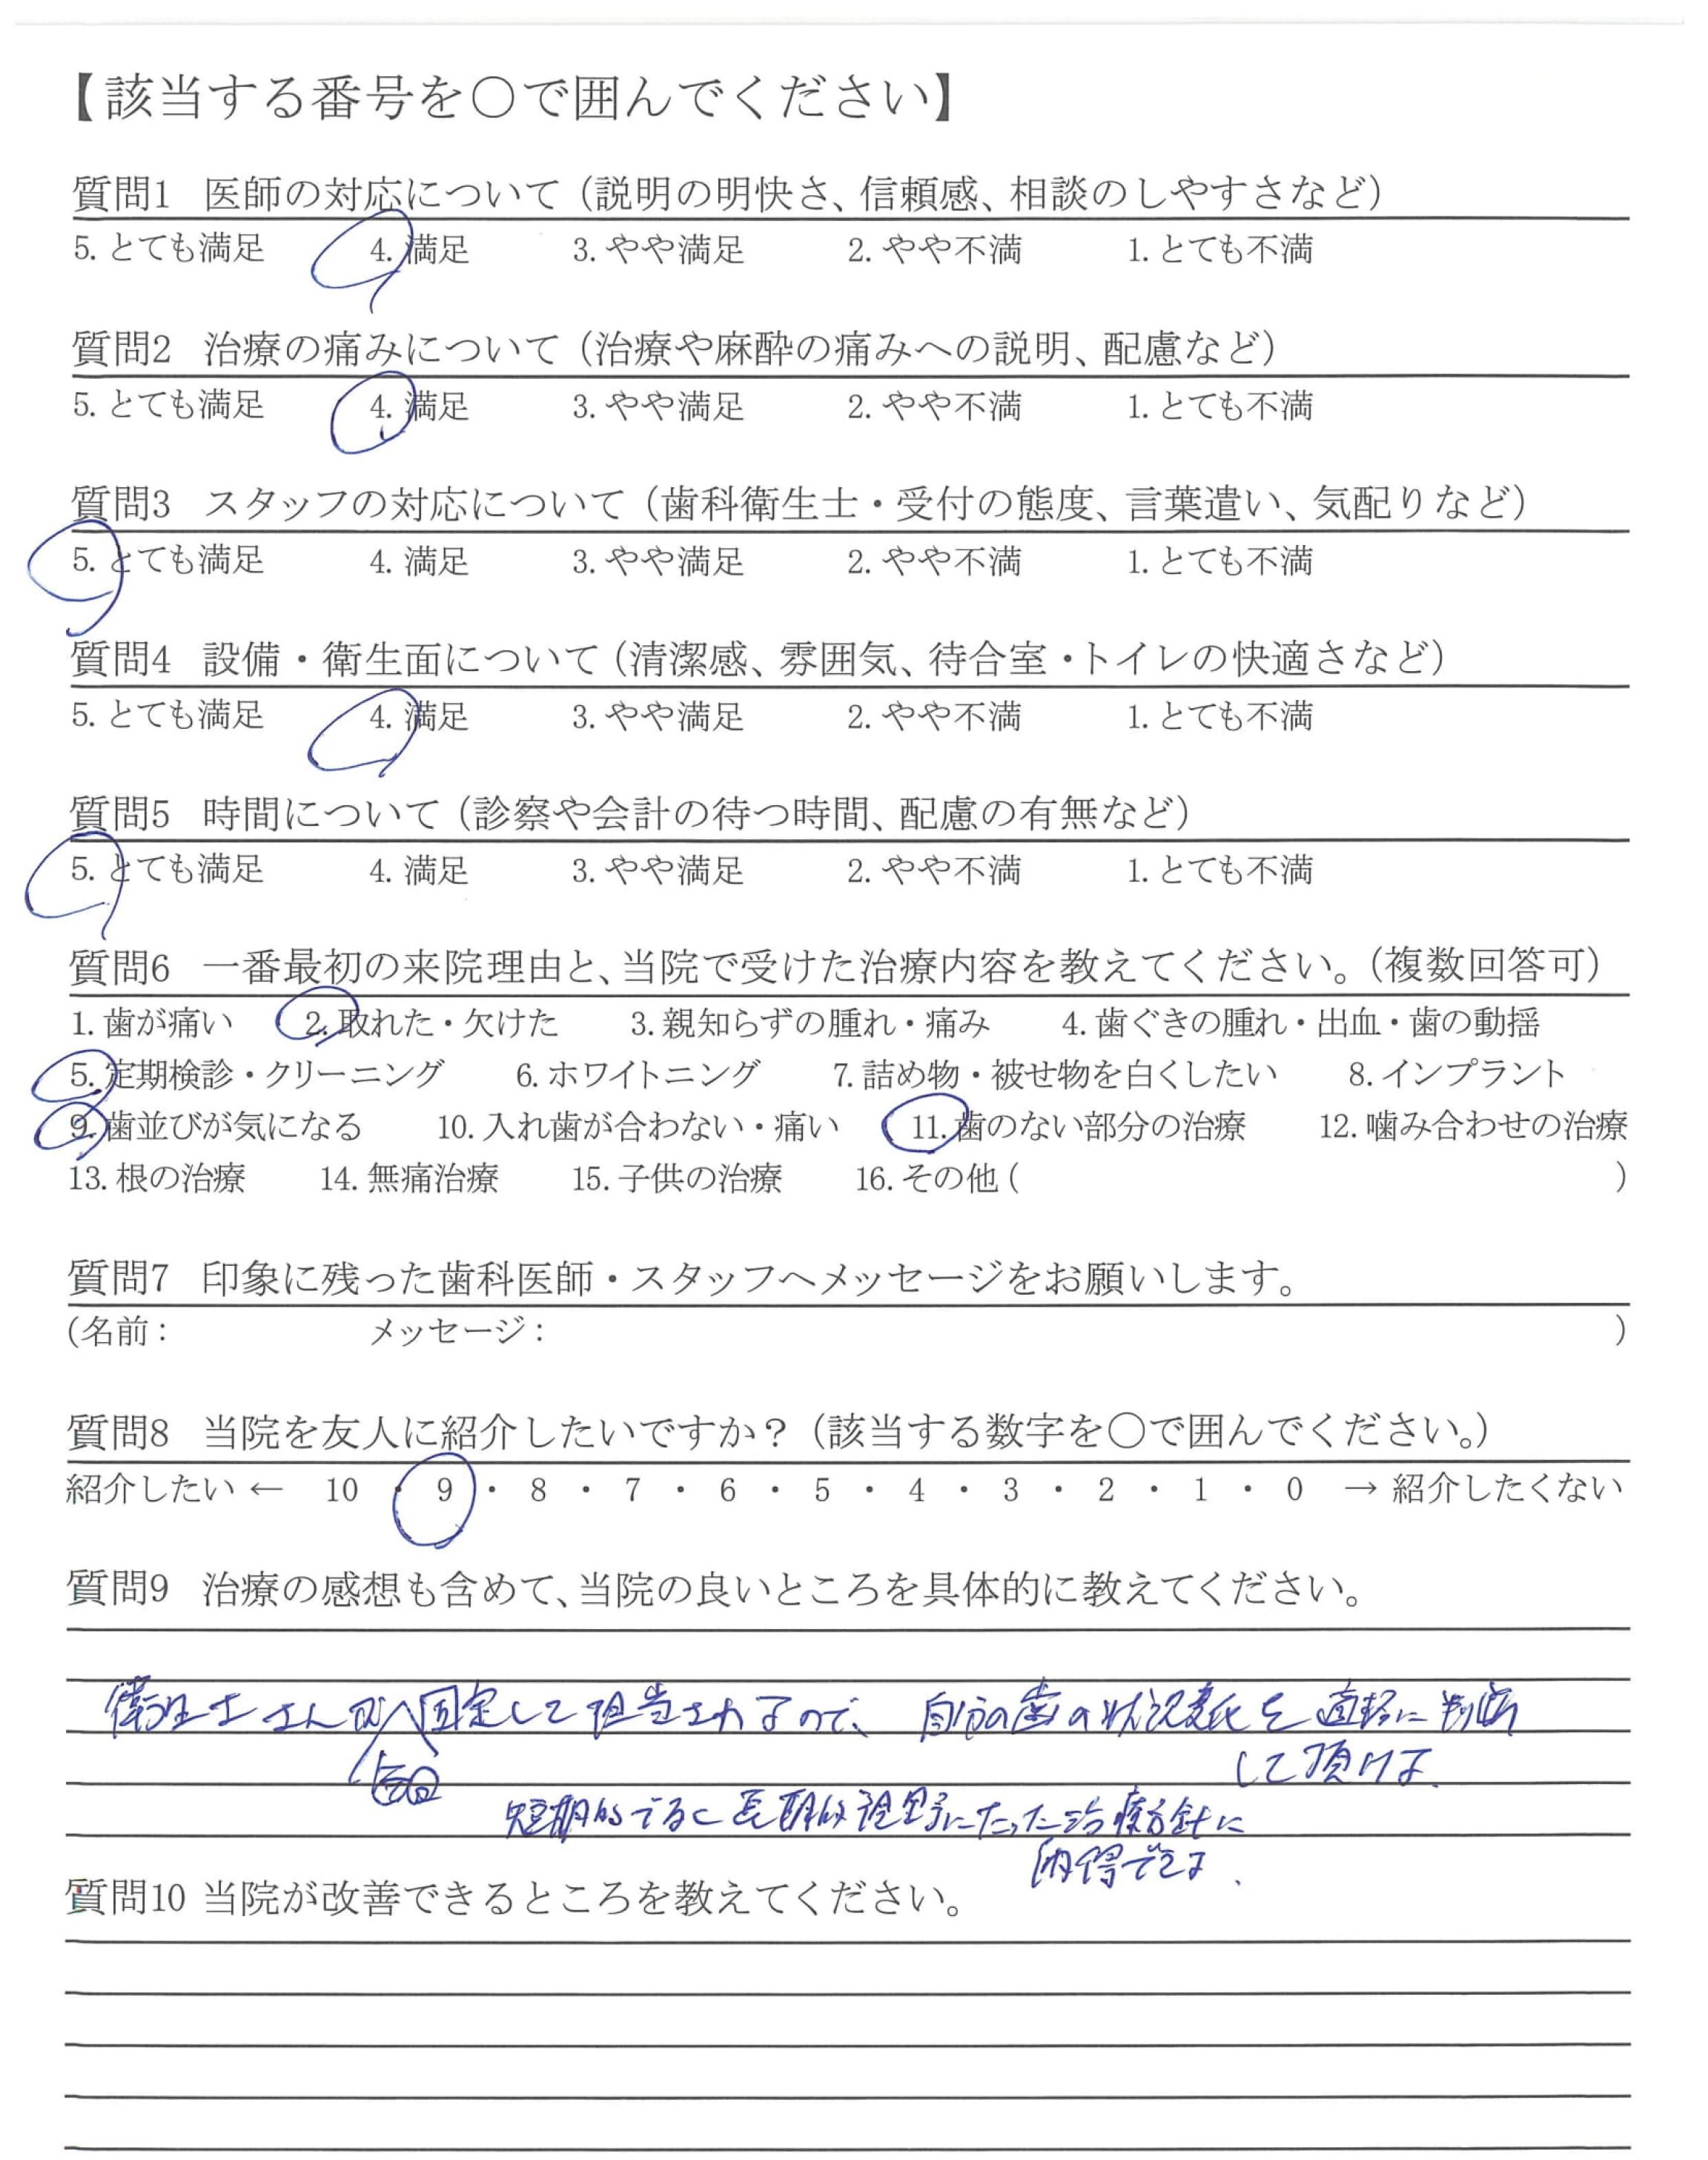 【該当する番号を○で囲んでください】
質問1 医師の対応について（説明の明快さ、信頼感、相談のしやすさなど）
5. とても満足 4. 満足 3. やや満足 2. やや不満 1. とても不満
質問2 治療の痛みについて（治療や麻酔の痛みへの説明、配慮など）
5. とても満足 4. 満足 3. やや満足 2. やや不満 1. とても不満
質問3 スタッフの対応について（歯科衛生士・受付の態度、言葉遣い、気配りなど）
5. とても満足 4. 満足 3. やや満足 2. やや不満 1. とても不満
質問4 設備・衛生面について（清潔感、雰囲気、待合室・トイレの快適さなど）
5. とても満足 4. 満足 3. やや満足 2. やや不満 1. とても不満
質問5 時間について（診察や会計の待つ時間、配慮の有無など）
5. とても満足 4. 満足 3. やや満足 2. やや不満 1. とても不満
質問6 一番最初の来院理由と、当院で受けた治療内容を教えてください。（複数回答可）
1. 歯が痛い 2. 取れた・欠けた 3. 親知らずの腫れ・痛み 4. 歯ぐきの腫れ・出血・歯の動揺
5. 定期検診・クリーニング 6. ホワイトニング 7. 詰め物・被せ物を白くしたい 8. インプラント
9. 歯並びが気になる 10. 入れ歯が合わない・痛い 11. 歯のない部分の治療 12. 噛み合わせの治療
13. 根の治療 14. 無痛治療 15. 子供の治療 16. その他 ( )
質問7 印象に残った歯科医師・スタッフへメッセージをお願いします。
(名前： メッセージ： )
質問8 当院を友人に紹介したいですか？（該当する数字を○で囲んでください。）
紹介したい ← 10 ・ 9 ・ 8 ・ 7 ・ 6 ・ 5 ・ 4 ・ 3 ・ 2 ・ 1 ・ 0 → 紹介したくない
質問9 治療の感想も含めて、当院の良いところを具体的に教えてください。
衛生士さんが固定して担当されるので、自分の歯の状況変化を 判断
毎回
して頂ける.
短期的でなく長期的視野にたった治療方針に
納得できる.
質問10 当院が改善できるところを教えてください。